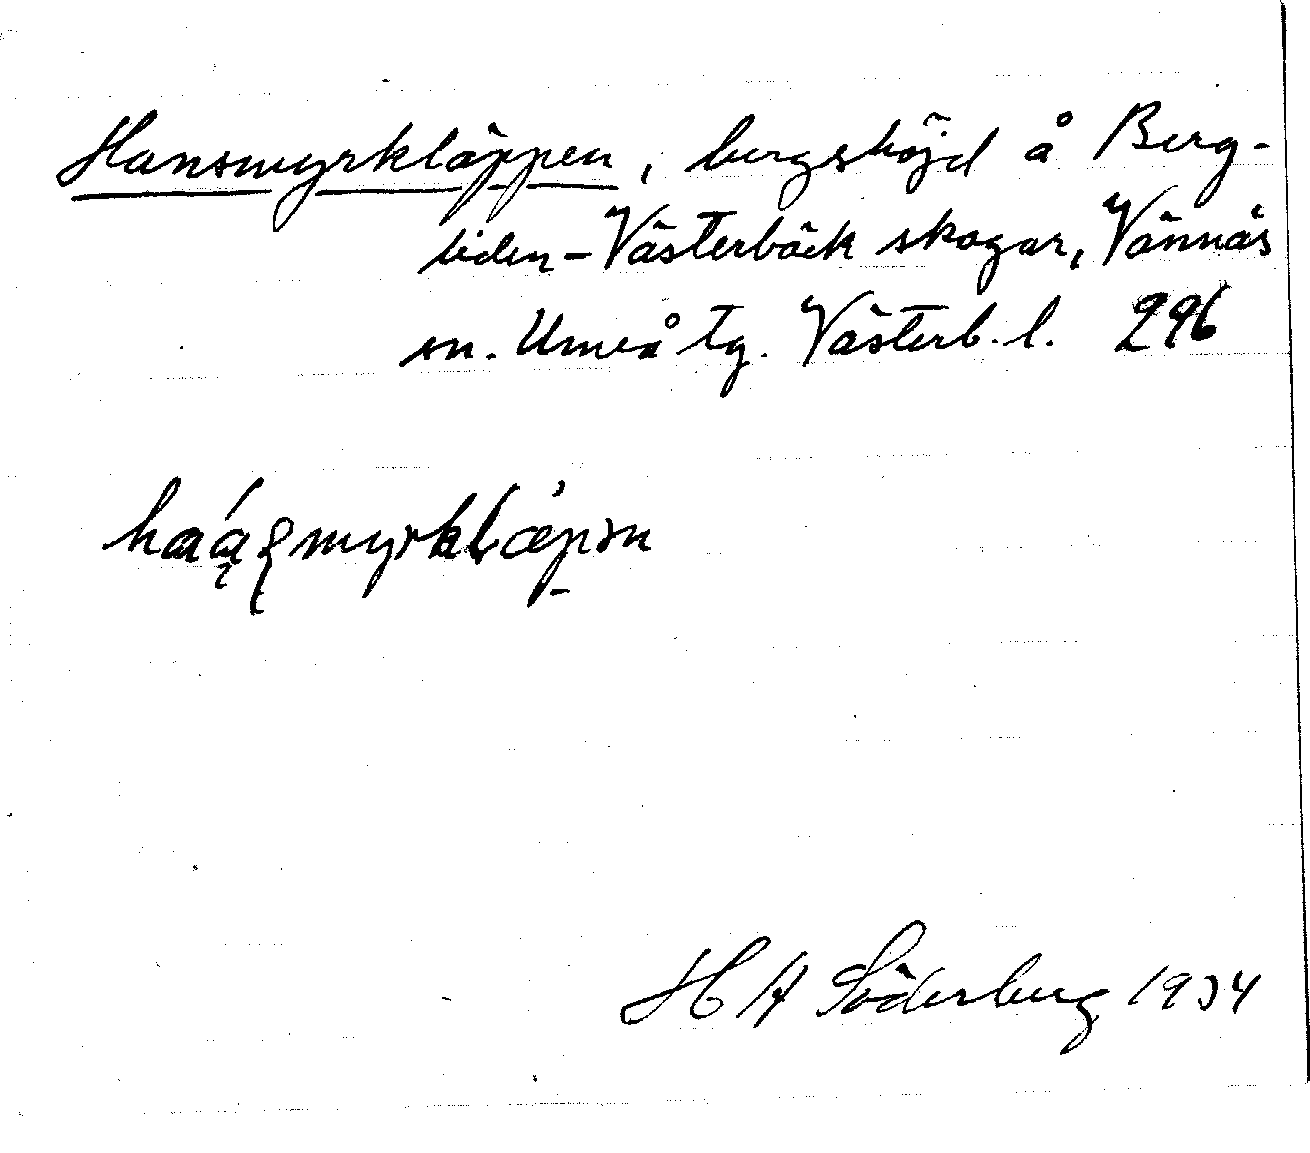 Hansmyrkläppen, bergshöjd å Berg-
liden-Västerbäck skogar, Vännäs
sn. Umeå tg. Västerb. l. 296
H A Söderberg 1934